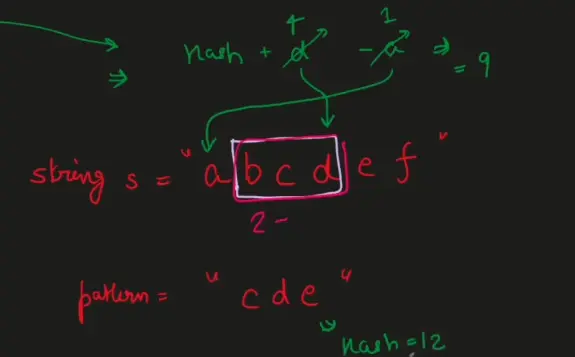 4 1
⇒ hash + d - a ⇒ = 9
string s = "a b c d e f"
2 -
pattern = "c d e"
hash = 12